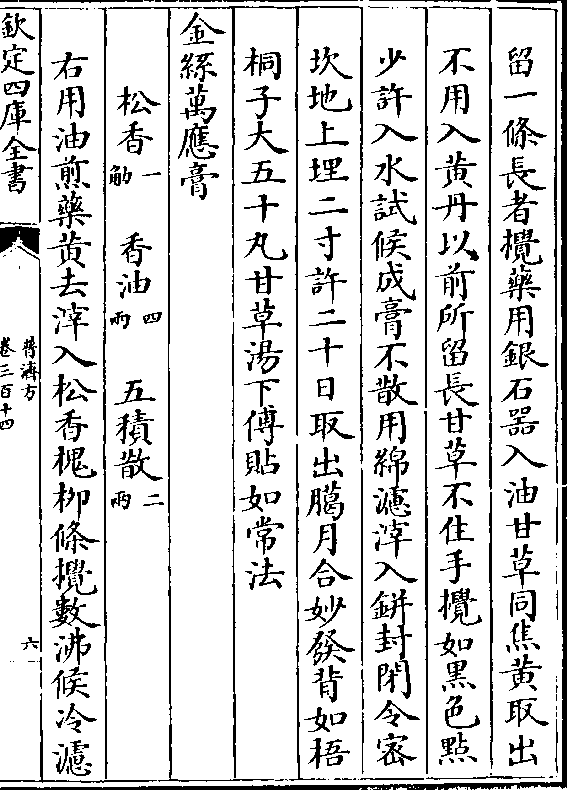 留一條長者攪藥用銀石器入油甘草同焦黄取出
不用入黄丹以前所留長甘草不住手攪如黑色點
少許入水試候成膏不散用綿濾滓入缾封閉令密
坎地上埋二寸許二十日取出臈月合妙發背如梧
桐子大五十丸甘草湯下傅貼如常法
金絲萬應膏
松香一觔 香油四兩 五積散二兩
右用油煎藥黄去滓入松香槐柳條攪數沸候冷濾
欽定四庫全書
普濟方
卷三百十四
六